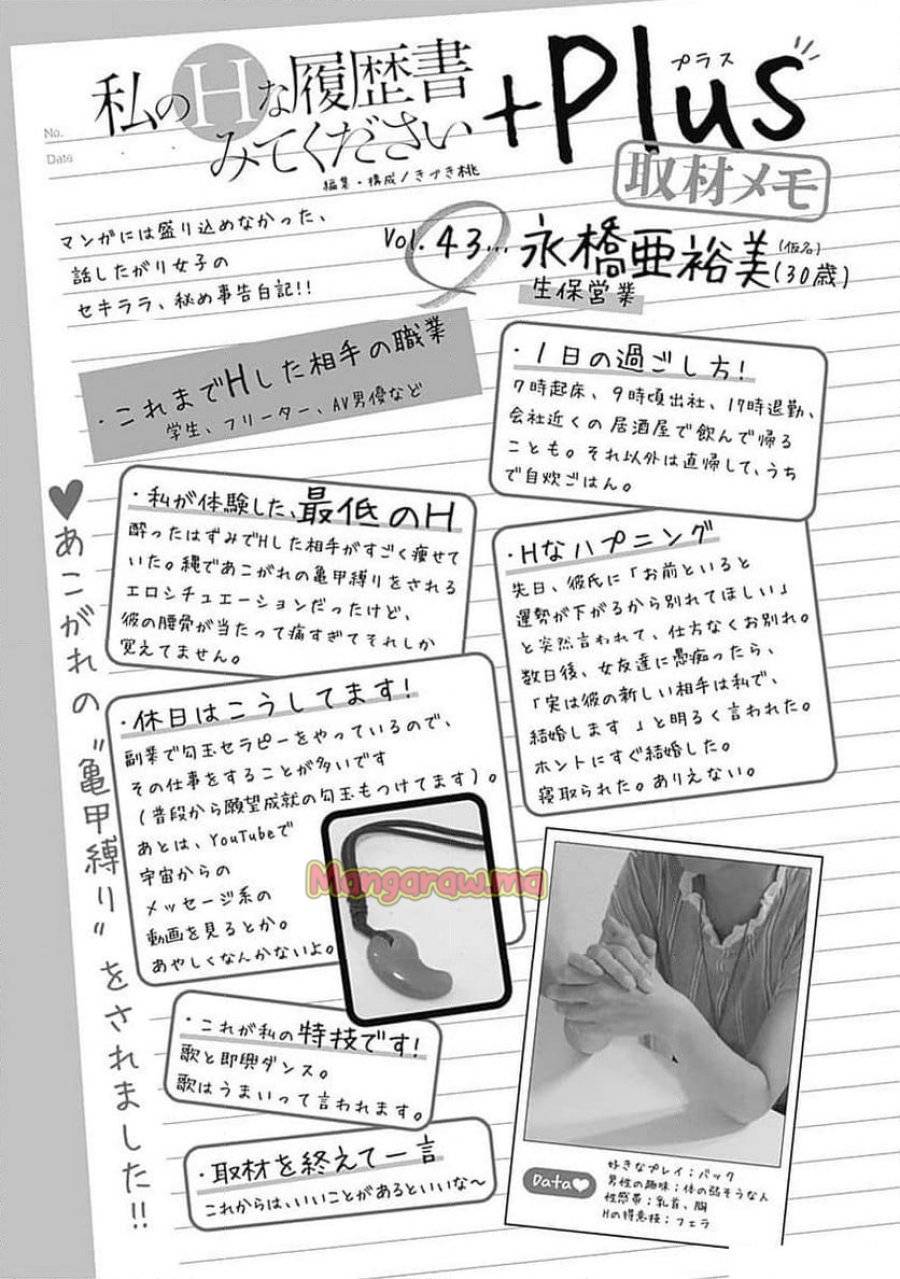 No.
Date
私のHな履歴書
みてください
+Plus
プラス
編集・構成/きづき桃
取材メモ
マンガには盛り込めなかった、
話したがり女子の
セキララ、秘め事告白記!!
Vol.43… 永橋亜裕美(仮名)(30歳)
生保営業
・これまでHした相手の職業
学生、フリーター、AV男優など
・1日の過ごし方!
7時起床、9時頃出社、17時退勤、
会社近くの居酒屋で飲んで帰る
ことも。それ以外は直帰して、うち
で自炊ごはん。
・私が体験した、最低のH
酔ったはずみでHした相手がすごく痩せて
いた。縄であこがれの亀甲縛りをされる
エロシチュエーションだったけど、
彼の腰骨が当たって痛すぎてそれしか
覚えてません。
・Hなハプニング
先日、彼氏に「お前といると
運勢が下がるから別れてほしい」
と突然言われて、仕方なくお別れ。
数日後、女友達に愚痴ったら、
「実は彼の新しい相手は私で、
結婚します」と明るく言われた。
ホントにすぐ結婚した。
寝取られた。ありえない。
♥あこがれの“亀甲縛り”をされました!!
・休日はこうしてます!
副業で勾玉セラピーをやっているので、
その仕事をすることが多いです
(普段から願望成就の勾玉もつけてます)。
あとは、YouTubeで
宇宙からの
メッセージ系の
動画を見るとか。
あやしくなんかないよ。
Mangaraw.ma
・これが私の特技です!
歌と即興ダンス。
歌はうまいって言われます。
・取材を終えて一言
これからは、いいことがあるといいな〜
Data♥
好きなプレイ:バック
男性の趣味:体の弱そうな人
性感帯:乳首、胸
Hの得意技:フェラ